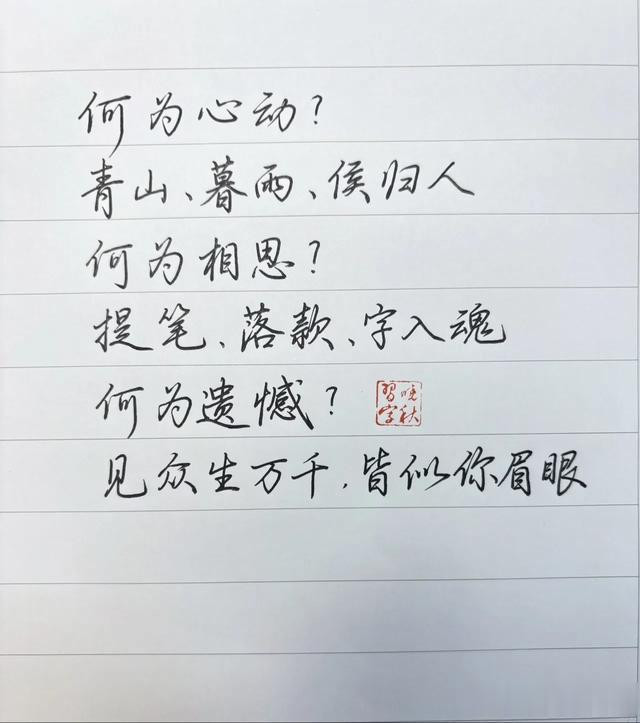 何为心动?
青山、暮雨、侯归人
何为相思?
提笔、落款、字入魂
何为遗憾?
晚秋習字
见众生万千,皆似你眉眼